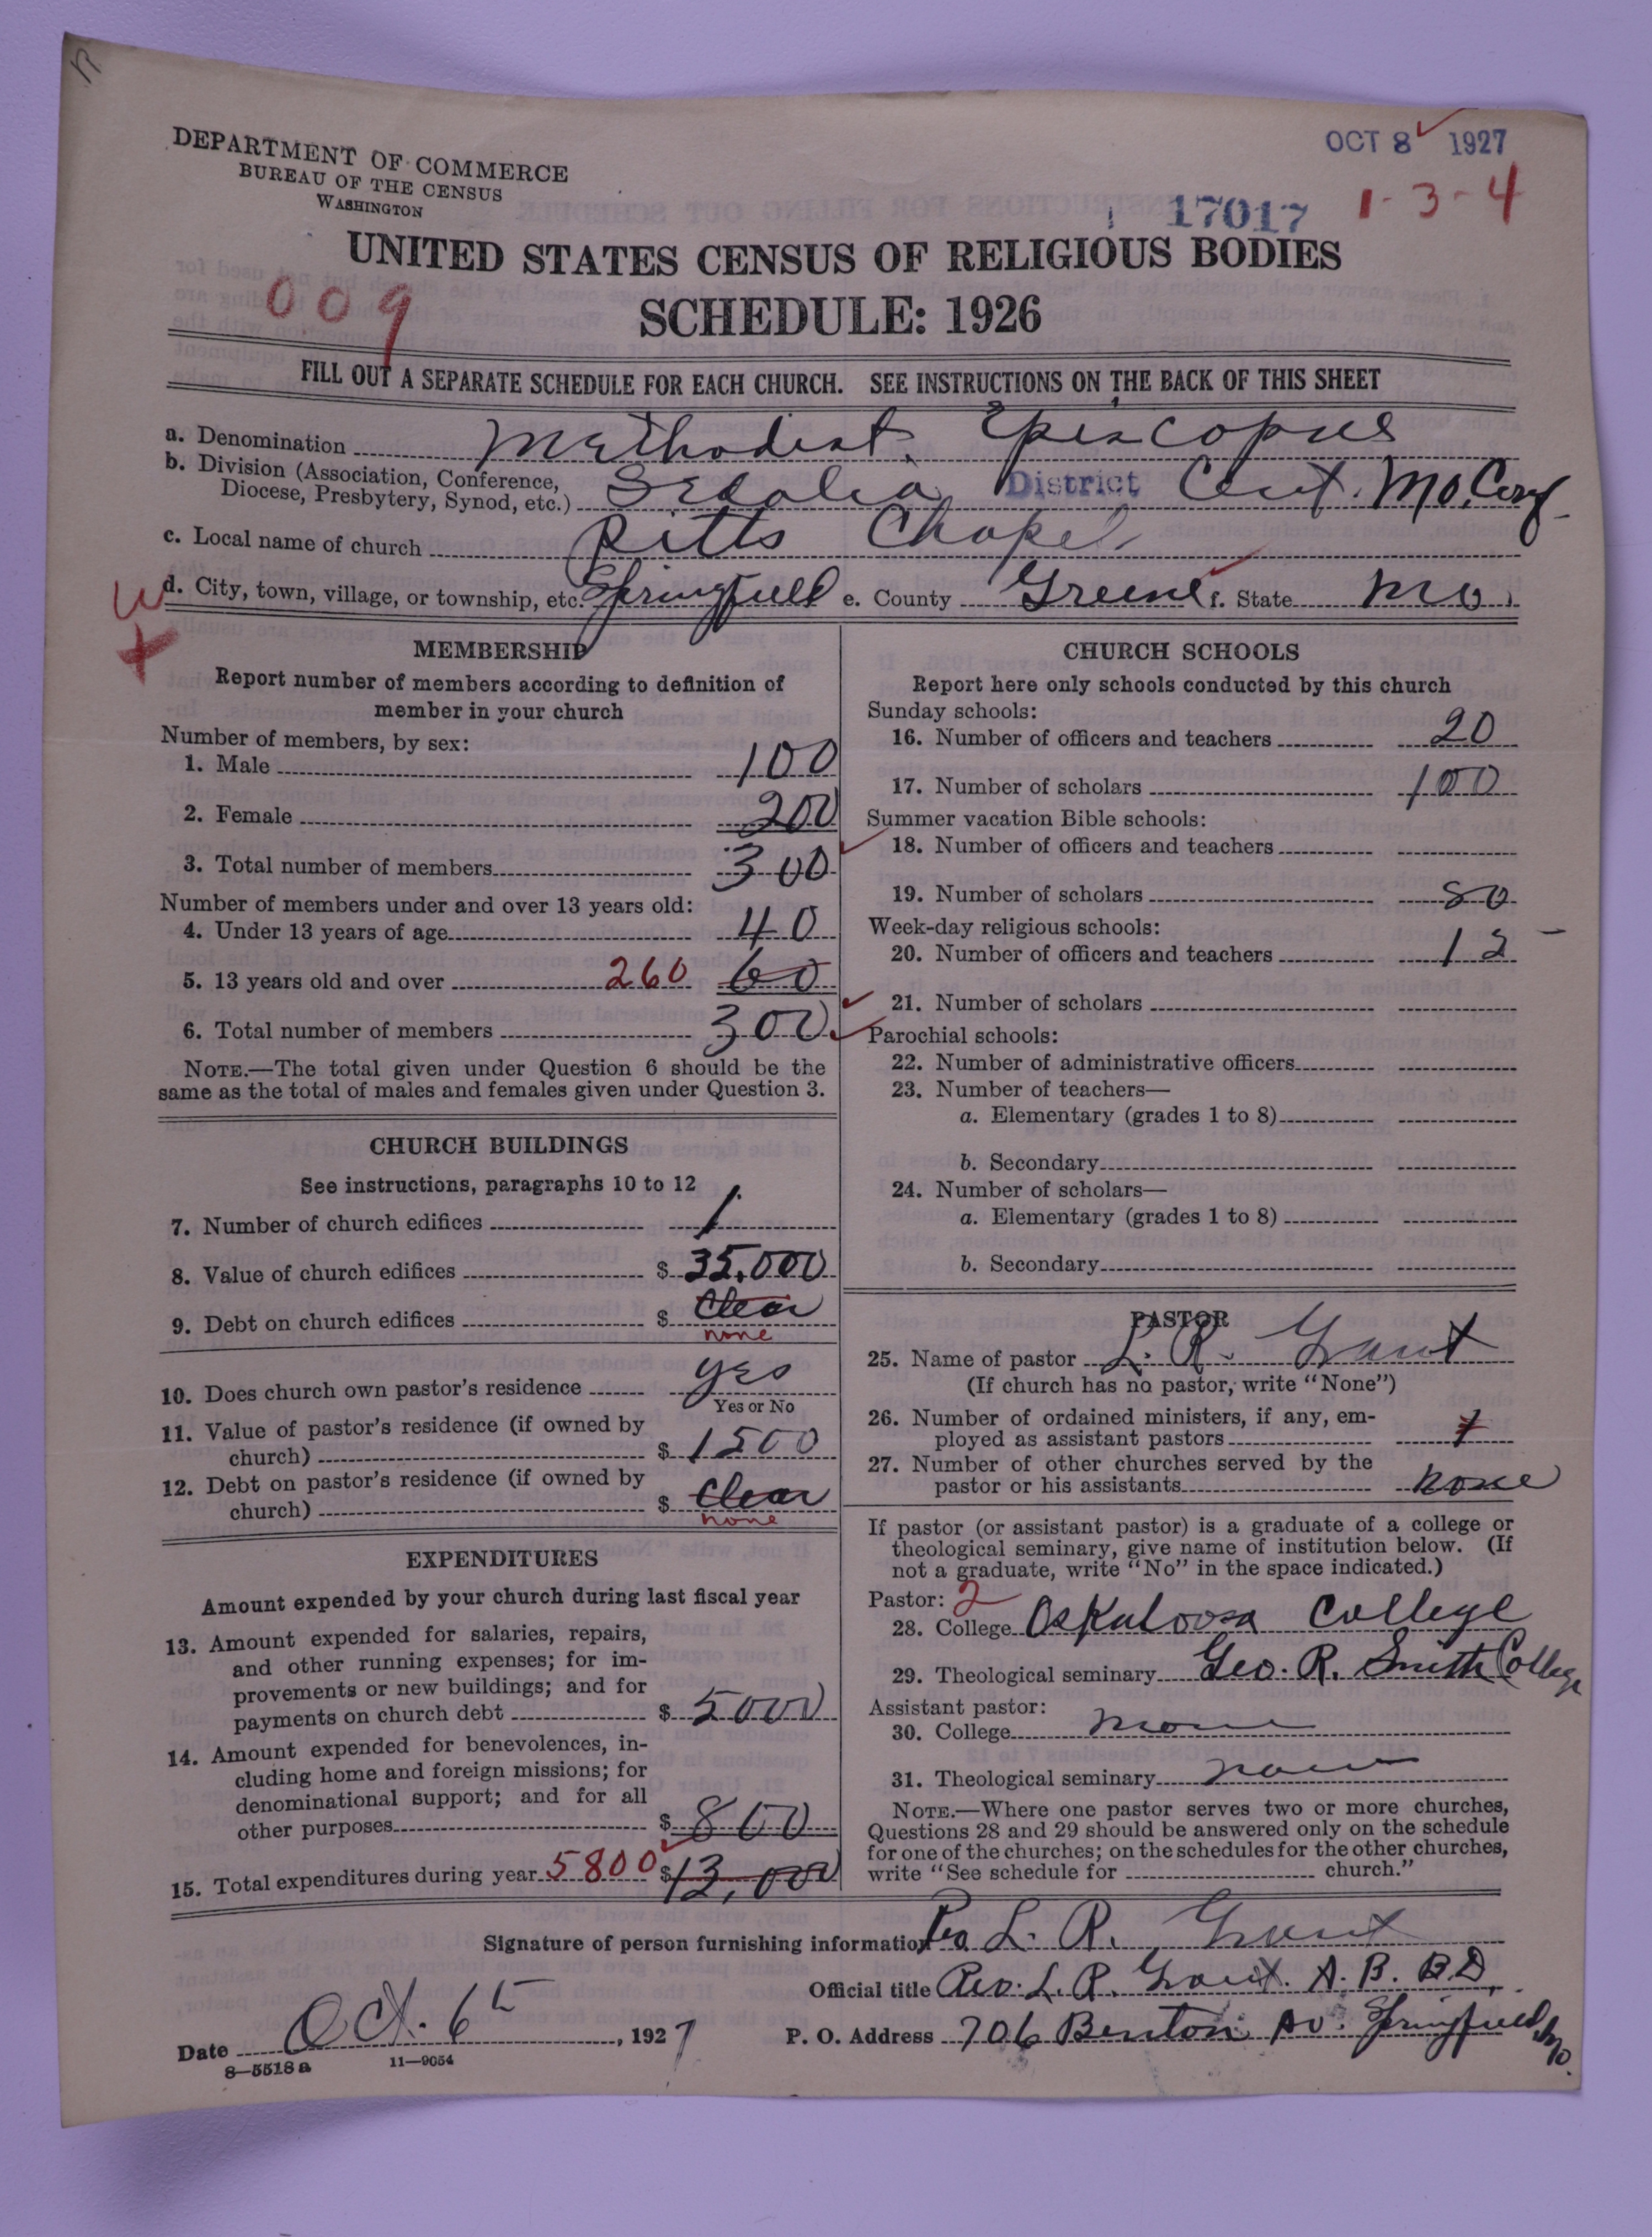 DEPARTMENT OF COMMERCE
BUREAU OF THE CENSUS
WASHINGTON
OCT 8 1927
17017
1-3-4
UNITED STATES CENSUS OF RELIGIOUS BODIES
009
SCHEDULE: 1926
FILL OUT A SEPARATE SCHEDULE FOR EACH CHURCH. SEE INSTRUCTIONS ON THE BACK OF THIS SHEET
a. Denomination Methodist Episcopus
b. Division (Association, Conference,
Diocese, Presbytery, Synod, etc.) Sedalia District Cent. Mo. Conf
c. Local name of church Pitts Chapel
d. City, town, village, or township, etc. Springfield e. County Greene f. State Mo.
MEMBERSHIP
Report number of members according to definition of
member in your church
Number of members, by sex:
1. Male 100
2. Female 200
3. Total number of members 300
Number of members under and over 13 years old:
4. Under 13 years of age 40
5. 13 years old and over 260 60
6. Total number of members 300
NOTE.—The total given under Question 6 should be the
same as the total of males and females given under Question 3.
CHURCH BUILDINGS
See instructions, paragraphs 10 to 12
7. Number of church edifices 1
8. Value of church edifices $ 35,000
9. Debt on church edifices $ Clear
none
10. Does church own pastor's residence yes
Yes or No
11. Value of pastor's residence (if owned by
church) $ 1500
12. Debt on pastor's residence (if owned by
church) $ Clear
none
EXPENDITURES
Amount expended by your church during last fiscal year
13. Amount expended for salaries, repairs,
and other running expenses; for im-
provements or new buildings; and for
payments on church debt $ 5000
14. Amount expended for benevolences, in-
cluding home and foreign missions; for
denominational support; and for all
other purposes $ 800
15. Total expenditures during year 5800 $ 13,000
CHURCH SCHOOLS
Report here only schools conducted by this church
Sunday schools:
16. Number of officers and teachers 20
17. Number of scholars 100
Summer vacation Bible schools:
18. Number of officers and teachers
19. Number of scholars 80
Week-day religious schools:
20. Number of officers and teachers 12
21. Number of scholars
Parochial schools:
22. Number of administrative officers
23. Number of teachers—
a. Elementary (grades 1 to 8)
b. Secondary
24. Number of scholars—
a. Elementary (grades 1 to 8)
b. Secondary
PASTOR
25. Name of pastor L. R. Grant
(If church has no pastor, write "None")
26. Number of ordained ministers, if any, em-
ployed as assistant pastors
27. Number of other churches served by the
pastor or his assistants none
If pastor (or assistant pastor) is a graduate of a college or
theological seminary, give name of institution below. (If
not a graduate, write "No" in the space indicated.)
Pastor: 2
28. College Oskaloosa College
29. Theological seminary Geo. R. Smith College
Assistant pastor:
30. College none
31. Theological seminary none
NOTE.—Where one pastor serves two or more churches,
Questions 28 and 29 should be answered only on the schedule
for one of the churches; on the schedules for the other churches,
write "See schedule for church."
Signature of person furnishing information Rev. L. R. Grant
Official title Rev. L. R. Grant. A. B. B.D.
Date Oct. 6th, 1927
P. O. Address 706 Benton Av. Springfield, Mo.
8—5518 a 11—9054